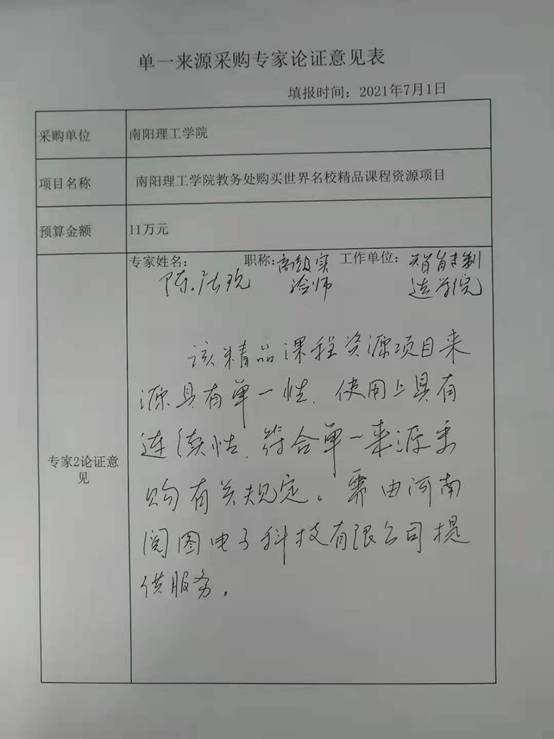 单一来源采购专家论证意见表
填报时间：2021年7月1日
采购单位 南阳理工学院
项目名称 南阳理工学院教务处购买世界名校精品课程资源项目
预算金额 11万元
专家姓名： 职称：高级实 工作单位：智能制
陈 验师 造学院
专家2论证意
见
该精品课程资源项目来
源具有单一性、使用上具有
连续性、符合单一来源采
购有关规定。需由河南
阅图电子科技有限公司提
供服务。